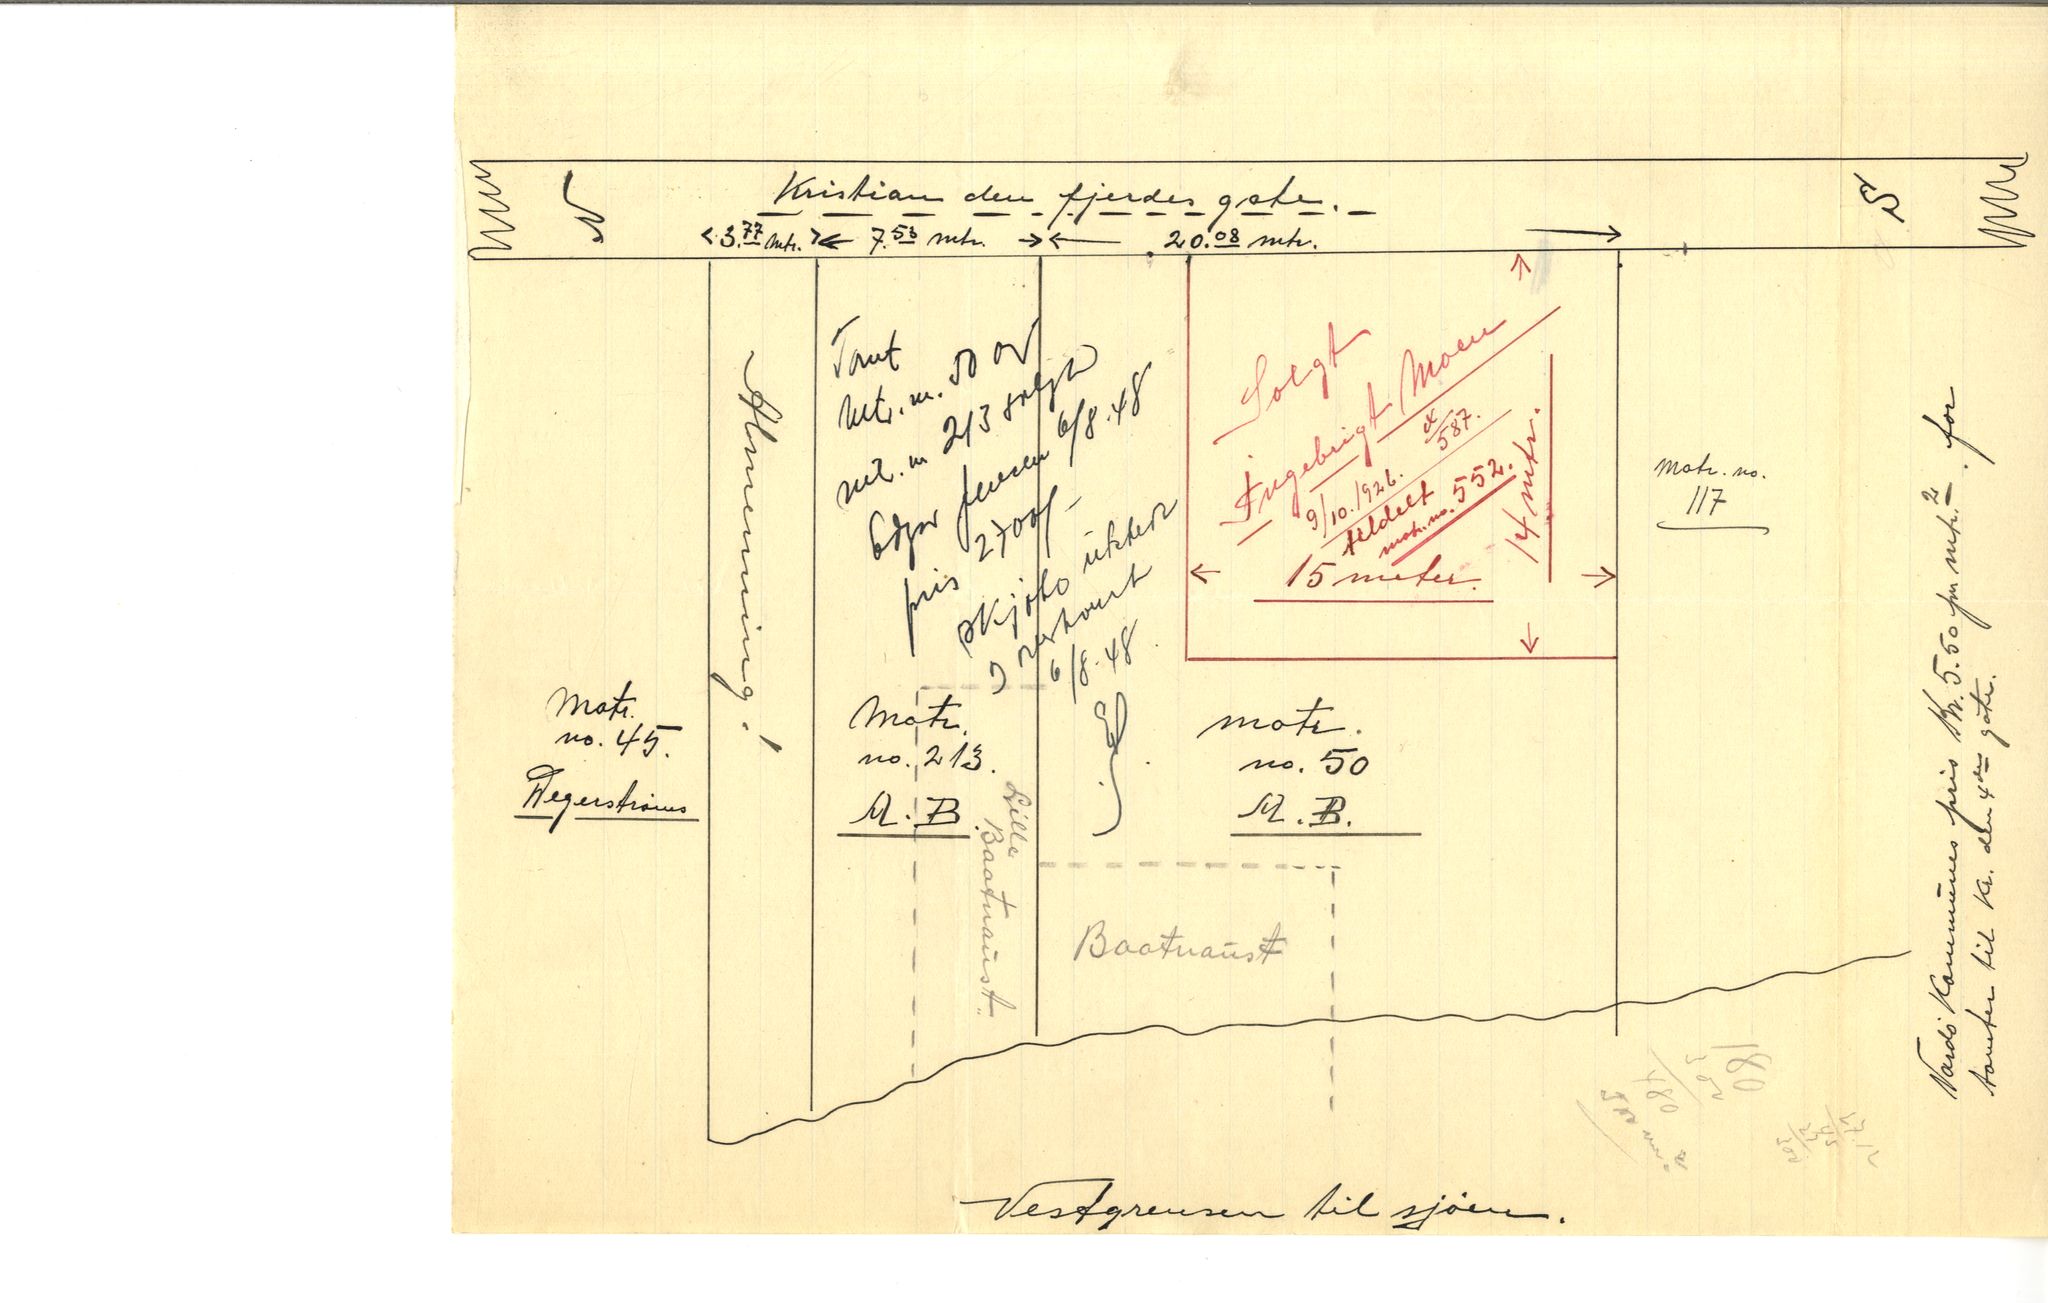 Kristian den fjerdes gate.
N
S
3.77 mtr.
7.53 mtr.
20.08 mtr.
Almenning!
Tomt
Mtr. nr. 50 og
mtr. nr 213 solgt
Edgar Jensen 6/8.48
pris 2700/-
Skjøte utsted
6/8.48
Solgt
Ingebrigt Moen
9/10.1926.
587.
tildelt
matr. no. 552.
15 meter.
14 mtr.
Matr. no.
117
Matr.
no. 45.
Wegerstrøms
Matr.
no. 213.
M. B.
Lille
Baatnaust.
matr.
no. 50
M. B.
Baatnaust
Vardö Kommunes pris Kr. 5.50 pr mtr.2 for
tomter til Kr. den 4des gate.
180
Vestgrensen til sjöen.